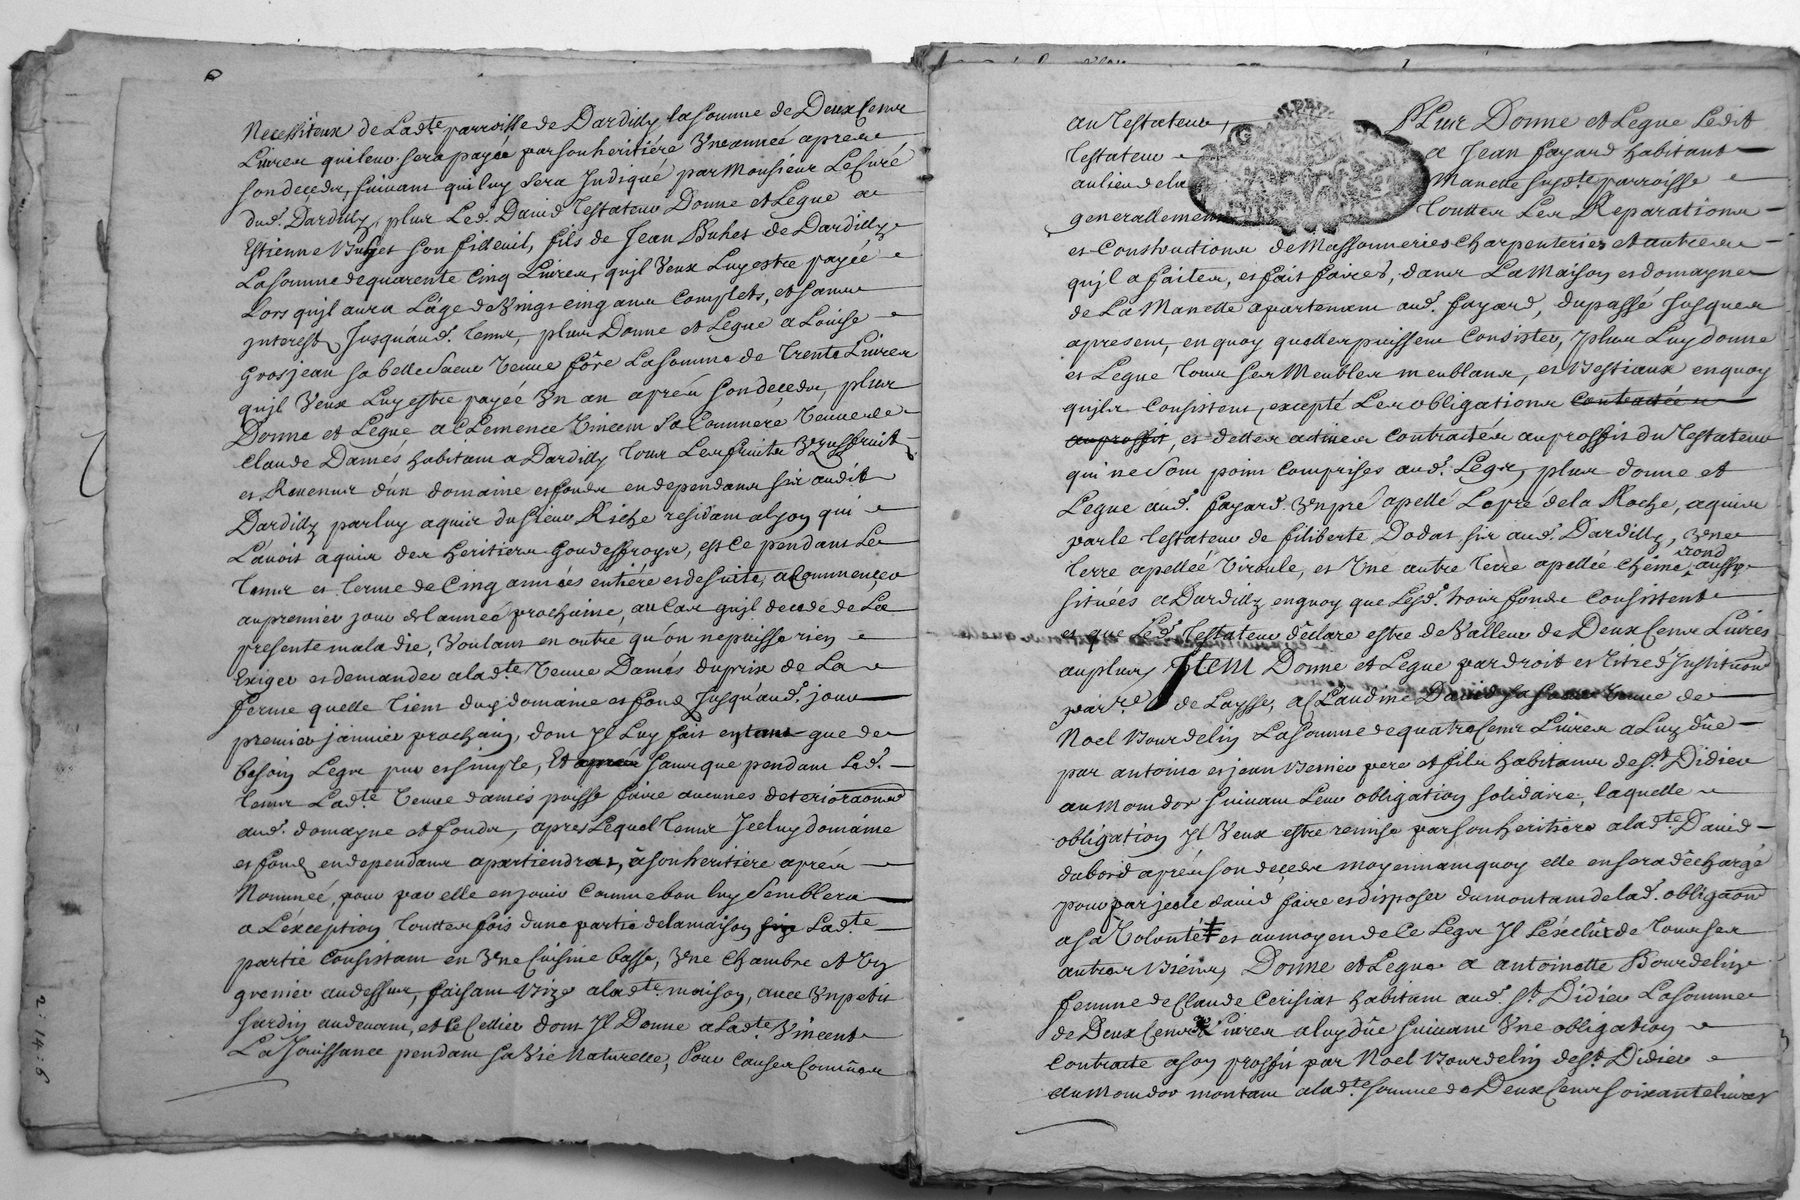 Necessiteux de Ladte parroisse de Dardilly la somme de Deux Cens
Livres quileur sera payée par son heritiére Une année apres
son decedz, suivant quil luy sera Indiqué par Monsieur Le Curé
dud. Dardilly, plus Led. David Testateur Donne et Legue a
Estienne Buhet son filleuil, fils de Jean Buhet de Dardilly
La somme de quarente Cinq Livres, quil Veux Luy estre payée
Lors quil aura L'age de Vingt cinq ans Complets, et sans
Interest Jusquáud. Tems, plus Donne et Legue a Louise
Grosjean sa belle Soeur Veuve fôre La somme de Trente Livres
quil Veux Luy estre payée Un an aprés son decedz, plus
Donne et Legue a Clemence Vincent Sa Commere Veuve de
Claude Damés habitant a Dardilly Tous Les fruits Uzuffruits
et Revenus d'un domaine et fonds en dependans sis audit
Dardilly par luy aquis du sieur Riche residant a lyon qui
L'avoit aquis des heritiers Goudeffroys, et ce pendant Le
Tems et Terme de Cinq années entiére et de suite, a Commencer
au premier jour de l'année prochaine, au Cas quil decede de La
presente maladie, Voulant en outre qu'on ne puisse rien
Exiger et demander a ladte Veuve Damés du prix de La
ferme quelle Tient dud. domaine et fond Jusquaud. jour
premier janvier prochain, dont Il Luy fait en tant que de
besoin Legs pur et simple, Et apres sans que pendant Led.
Tems Ladte Veuve damés puisse faire aucunes deterioraons
aud. domayne et fonds, apres Lequel Tems Iceluy domaine
et fond en dependans apartiendrat, à son heritiere aprés
Nommée, pour par elle en jouir Comme bon luy Semblera
a L'éxception Touttes fois d'une partie de la maison Ladte
partie Consistant en Une Cuisine basse, Une Chambre et Un
grenier au dessus, faisant Vize a ladte maison, avec Un petit
Jardin au devant, et Le Cellier dont Il Donne a Ladte Vincent
La Jouissance pendant sa Vie Naturelle, Pour Causes Connües
au Testateur, PLus Donne et Legue Ledit
Testateur a Jean fayard habitant
au lieu de la Manette susdte parroisse
generallement Touttes Les Reparations
et Constructions de Massonneries Charpenteries et autres
quil a faites, et fait faires, dans La Maison et domayne
de La Manette apartenant aud. fayard, du passé Jusques
apresent, en quoy quelles puissent Consister, plus Luy donne
et Legue Tous ses Meubles meublans, et Bestiaux en quoy
quils Consistent, excepté Les obligations Contractées
au proffit, et dettes actives Contractées au proffit du Testateur
qui ne Sont point Comprises aud. Legs, plus donne et
Legue aud. fayard Un pré apellé Le pré de la Roche, aquis
par le Testateur de filiberte Dodat sis aud. Dardilly, Une
Terre apellée Viroule, et Une autre Terre apellée Chéne rond aussy
situées a Dardilly en quoy que Lesd. trois fonds Consistent
et que Led. Testateur declare estre de Valleur de Deux Cens Livres
au plus, Item Donne et Legue par droit et Titre d'Instituon
par.re de Laysse, a Claudine David sa soeur Veuve de
Noel Bourdelin La somme de quatre Cens Livres a Luy düe
par antoine et jean Vernier pere et fils habitans de St. Didier
au Montdor suivant Leur obligation solidaire, laquelle
obligation Il Veux estre remise par son heritiére a ladte David
dabord aprés son decedz moyennant quoy elle en sera dechargé
pour par jcele david faire et disposer du montant de lad. obligaon
a sa Volonté et au moyen de Ce Legs Il L'éxclüt de Tous ses
autres Biens, Donne et Legue a antoinette Bourdelin
femme de Claude Cerisiat habitant aud. St. Didier La somme
de Deux Cens Livres a luy düe suivant Une obligation
Contracte a son proffit par Noel Bourdelin de St. Didier
au Montdor montant a ladte somme de Deux Cens soixante livres
2:14:6